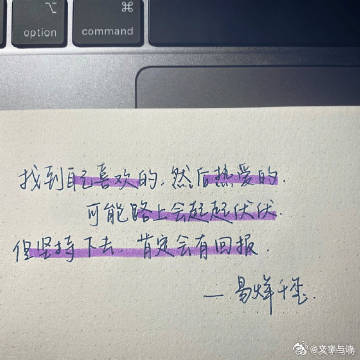 option
command
找到自己喜欢的，然后热爱的．
可能路上会起起伏伏．
但坚持下去 肯定会有回报．
—易烊千玺．
@文字与诗